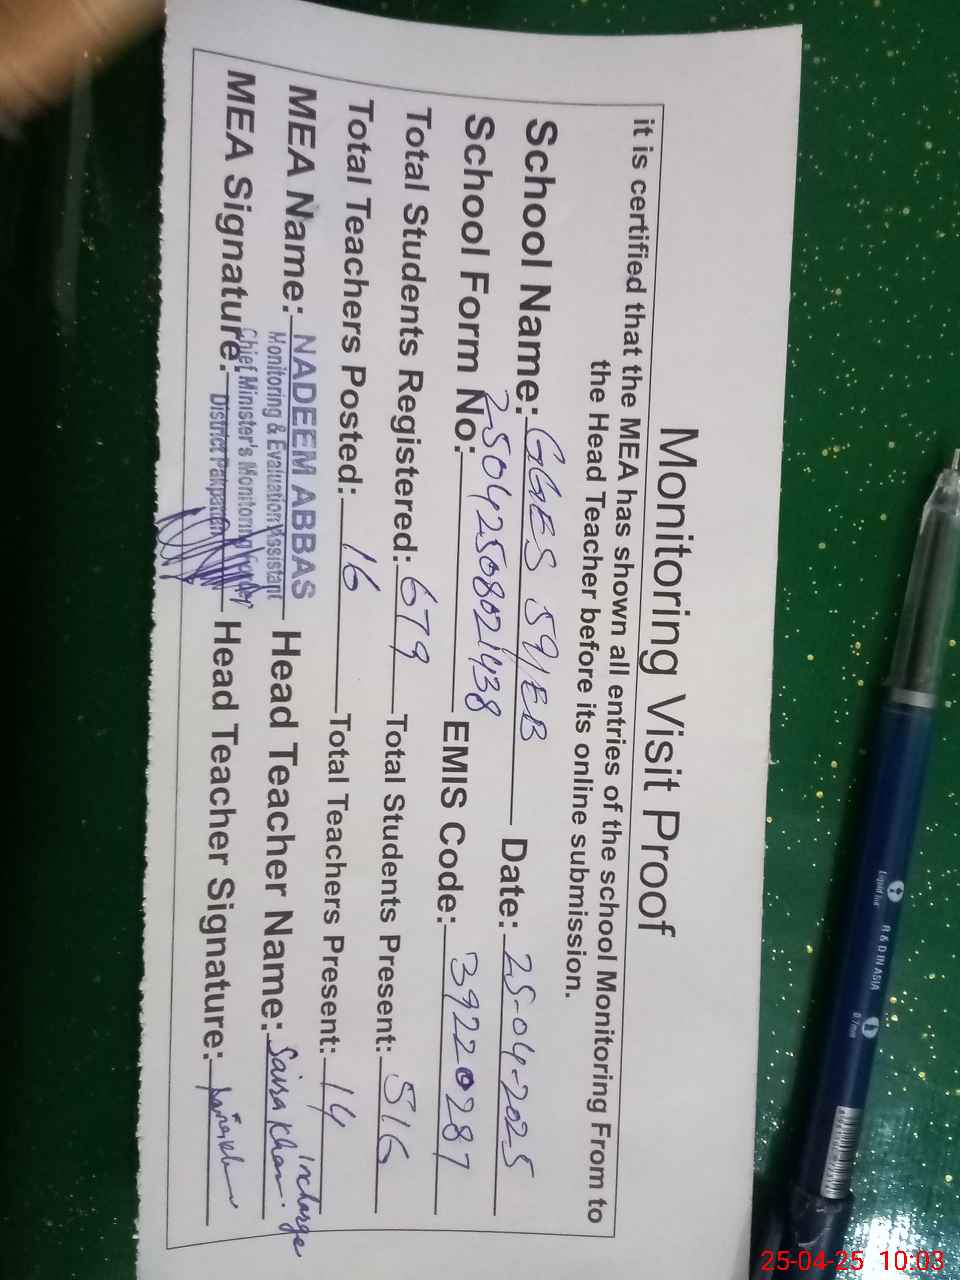 Monitoring Visit Proof
it is certified that the MEA has shown all entries of the school Monitoring From to
the Head Teacher before its online submission.
School Name: GGES 59/EB Date: 25-04-2025
School Form No: 25042508021438 EMIS Code: 39220287
Total Students Registered: 679 Total Students Present: 516
Total Teachers Posted: 16 Total Teachers Present: 14
MEA Name: NADEEM ABBAS Head Teacher Name: Saira Khan Incharge
Monitoring & Evaluation Assistant
Chief Minister's Monitoring
MEA Signature: District Pakpattan Head Teacher Signature:
Liquid Ink
R & D IN ASIA
0.7mm
25-04-25 10:03